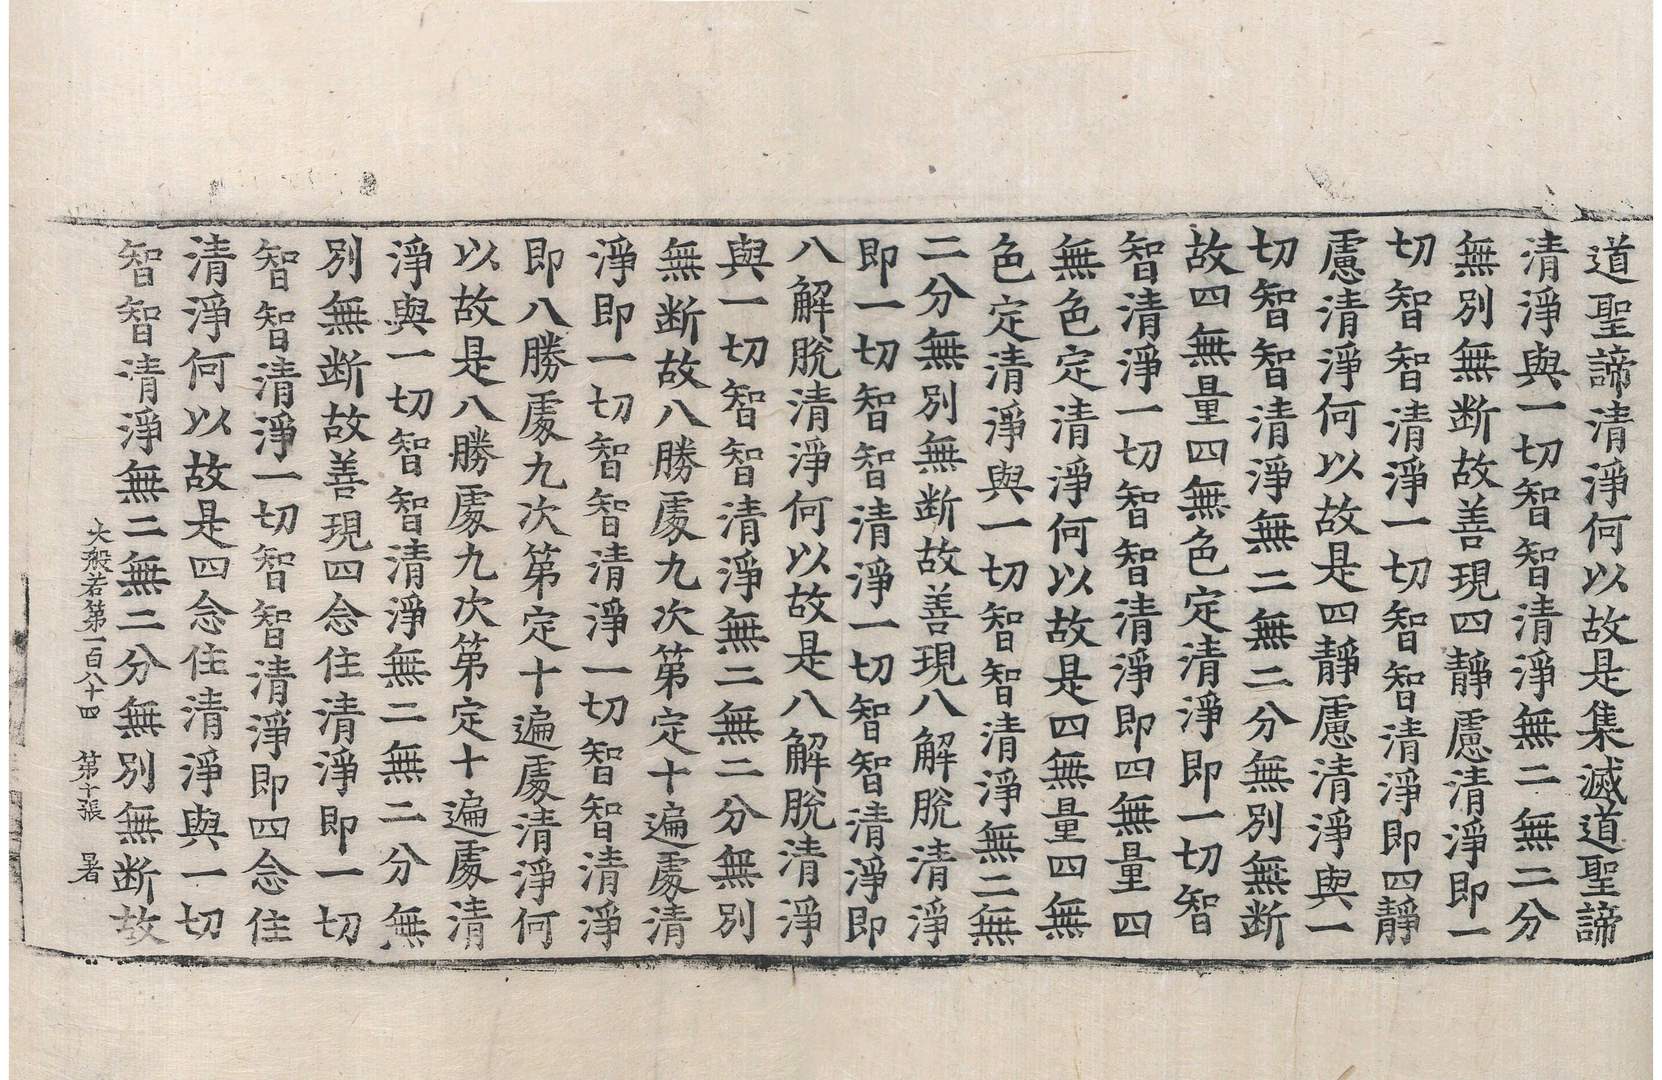 道聖諦清淨何以故是集滅道聖諦
清淨與一切智智清淨無二無二分
無別無断故善現四靜慮清淨即一
切智智清淨一切智智清淨即四靜
慮清淨何以故是四靜慮清淨與一
切智智清淨無二無二分無別無断
故四無量四無色定清淨即一切智
智清淨一切智智清淨即四無量四
無色定清淨何以故是四無量四無
色定清淨與一切智智清淨無二無
二分無別無断故善現八解脫清淨
即一切智智清淨一切智智清淨即
八解脫清淨何以故是八解脫清淨
與一切智智清淨無二無二分無別
無断故八勝處九次第定十遍處清
淨即一切智智清淨一切智智清淨
即八勝處九次第定十遍處清淨何
以故是八勝處九次第定十遍處清
淨與一切智智清淨無二無二分無
別無断故善現四念住清淨即一切
智智清淨一切智智清淨即四念住
清淨何以故是四念住清淨與一切
智智清淨無二無二分無別無断故
大般若第一百八十四 第十張 暑